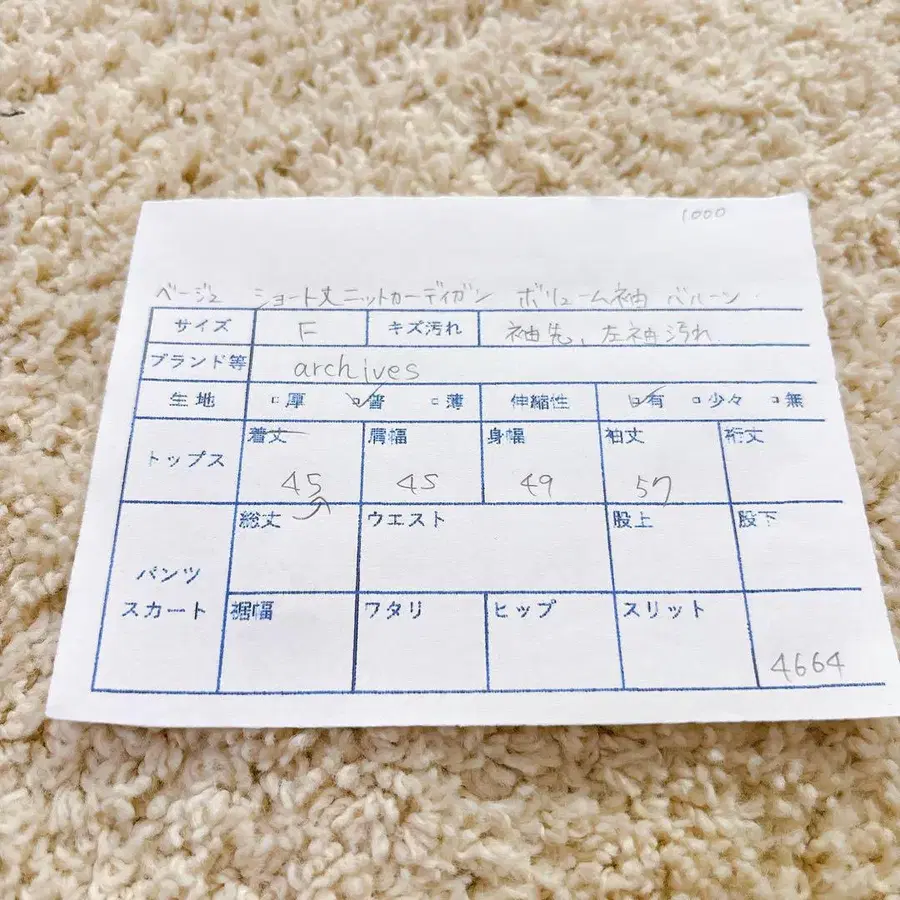 1000
ベージュ ショート丈ニットカーディガン ボリューム袖 バルーン
サイズ F キズ汚れ 袖先、左袖汚れ
ブランド等 archives
生地 厚 普 薄 伸縮性 有 少々 無
トップス 着丈 肩幅 身幅 袖丈 裄丈
45 45 49 57
パンツ スカート 総丈 ウエスト 股上 股下
裾幅 ワタリ ヒップ スリット
4664